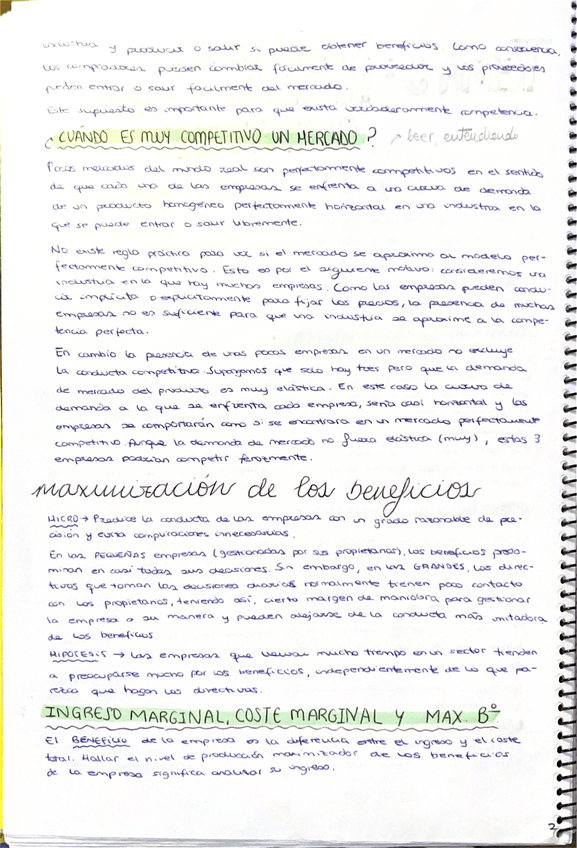 industria y producir o salir si puede obtener beneficios. Como consecuencia,
los compradores pueden cambiar fácilmente de proveedor y los proveedores
pueden entrar o salir facilmente del mercado.
Este supuesto es importante para que exista verdaderamente competencia.
¿CUÁNDO ES MUY COMPETITIVO UN MERCADO? → leer, entendiendo
Pocos mercados del mundo real son perfectamente competitivos en el sentido
de que cada una de las empresas se enfrenta a una curva de demanda
de un producto homogéneo perfectamente horizontal en una industria en la
que se puede entrar o salir libremente.
No existe regla práctica para ver si el mercado se aproxima al modelo per-
fectamente competitivo. Esto es por el siguiente motivo: consideremos una
industria en la que hay muchas empresas. Como las empresas pueden condu-
cir implícita o explícitamente para fijar los precios, la presencia de muchas
empresas no es suficiente para que una industria se aproxime a la compe-
tencia perfecta.
En cambio la presencia de unas pocas empresas en un mercado no excluye
la conducta competitiva. Supongamos que solo hay tres pero que la demanda
de mercado del producto es muy elástica. En este caso la curva de
demanda a la que se enfrenta cada empresa, sería casi horizontal y las
empresas se comportarán como si se encontrara en un mercado perfectamente
competitivo. Aunque la demanda de mercado no fuera elástica (muy), estas 3
empresas podrían competir ferozmente.
maximización de los beneficios
MICRO → Predice la conducta de las empresas con un grado razonable de pre-
cisión y evita complicaciones innecesarias.
En las PEQUEÑAS empresas (gestionadas por sus propietarios), los beneficios predo-
minan en casi todas sus decisiones. Sin embargo, en las GRANDES, los direc-
tivos que toman las decisiones diarias normalmente tienen poco contacto
con los propietarios, teniendo así, cierto margen de maniobra para gestionar
la empresa a su manera y pueden alejarse de la conducta más imitadora
de los beneficios
HIPOTESIS → Las empresas que llevan mucho tiempo en un sector tienden
a preocuparse mucho por los beneficios, independientemente de lo que pa-
rezca que hagan las directivas.
INGRESO MARGINAL, COSTE MARGINAL Y MAX. Bº
El BENEFICIO de la empresa es la diferencia entre el ingreso y el coste
total. Hallar el nivel de producción maximizador de los beneficios
de la empresa significa analizar su ingreso.
2